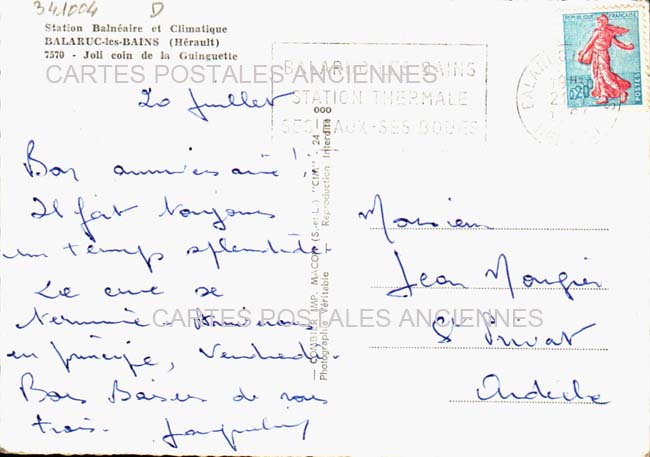 341004 D
Station Balnéaire et Climatique
BALARUC-les-BAINS (Hérault)
7570 - Joli coin de la Guinguette
CARTES POSTALES ANCIENNES
BALARUC-LES-BAINS
STATION THERMALE
SES EAUX-SES BOUES
REPUBLIQUE FRANÇAISE
0,20
POSTES
20 Juillet
Bon anniversaire !
Il fait toujours
un temps splendide.
La cure se
termine. Arriverons,
en principe, Vendredi.
Bons Baisers de nous
trois. Jacqueline
000
— COMBIER IMP. MACON (S.-et-L.) "CIM" - 24
Photographie Véritable Reproduction Interdite
Monsieur
Jean Mougier
St Privat
Ardèche
CARTES POSTALES ANCIENNES